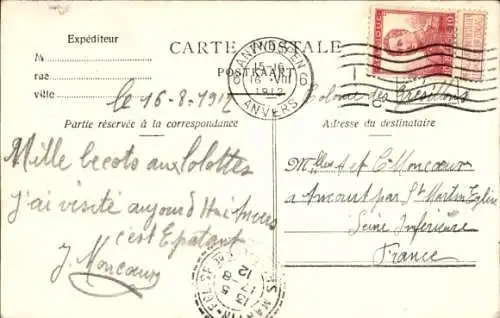 Expéditeur
M
rue
ville
CARTE POSTALE
POSTKAART
ANTWERPEN
15-16
16 VIII
1912
ANVERS
6
10
le 16-8-1912
Colonie des Grésillons
Partie réservée à la correspondance
Adresse du destinataire
Mille becots aux Lolottes
J'ai visité aujourd'hui Anvers
c'est Epatant
J. Moncœur
Melles A et C. Moncœur
à Ancourt par St Martin Eglise
Seine Inférieure
France
MARTIN-EGLISE
13 5
17 8
12